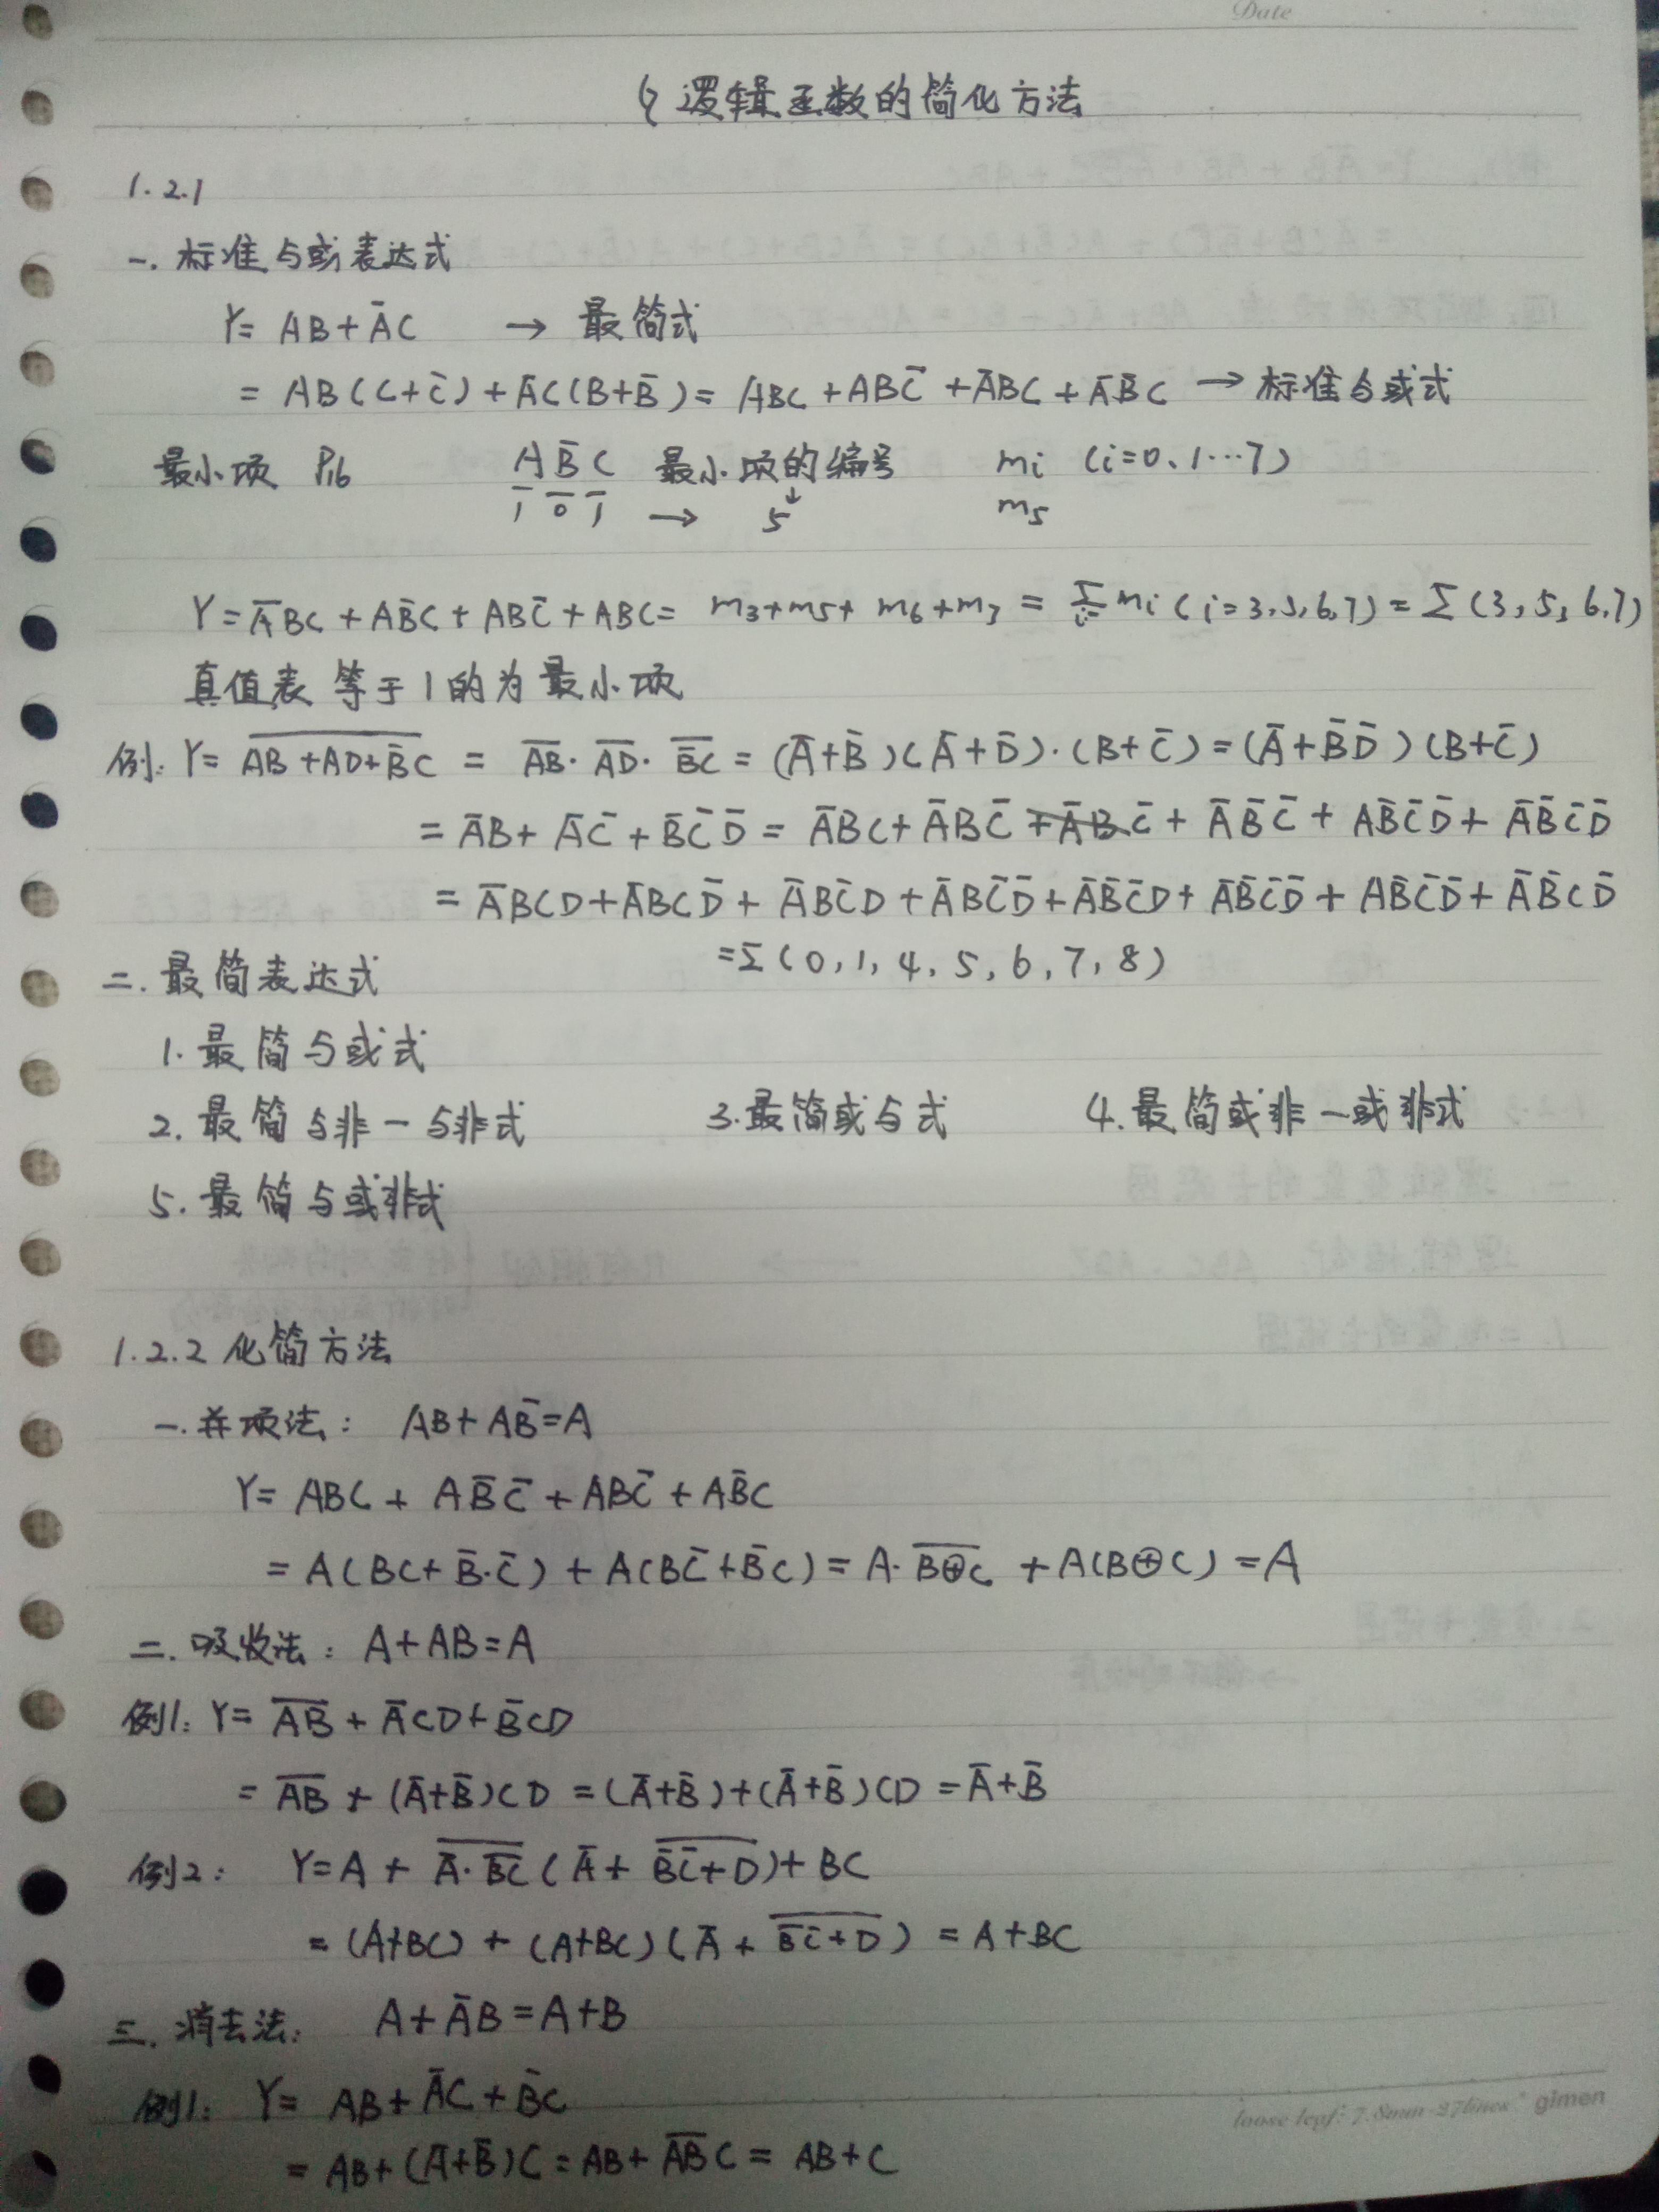 Date
§ 逻辑函数的简化方法
1.2.1
一. 标准与或表达式
Y= AB+A̅C → 最简式
= AB(C+C̅)+A̅C(B+B̅)= ABC+ABC̅+A̅BC+A̅B̅C → 标准与或式
最小项 P16 AB̅C 最小项的编号 mi (i=0、1…7)
1 0 1 → 5 m5
Y=A̅BC+AB̅C+ABC̅+ABC= m3+m5+m6+m7 = Σmi(i=3,5,6,7)=Σ(3,5,6,7)
真值表等于1的为最小项
例: Y= \overline{AB+AD+B̅C} = \overline{AB}·\overline{AD}·\overline{B̅C} = (A̅+B̅)(A̅+D̅)·(B+C̅)=(A̅+B̅D̅)(B+C̅)
= A̅B+A̅C̅+B̅C̅D̅ = A̅BC+A̅BC̅+A̅BC̅+A̅B̅C̅+AB̅C̅D̅+A̅B̅C̅D̅
= A̅BCD+A̅BCD̅+A̅BC̅D+A̅BC̅D̅+A̅B̅C̅D+A̅B̅C̅D̅+AB̅C̅D̅+A̅B̅CD̅
=Σ(0,1,4,5,6,7,8)
二. 最简表达式
1. 最简与或式
2. 最简与非-与非式 3.最简或与式 4.最简或非-或非式
5. 最简与或非式
1.2.2 化简方法
一.并项法: AB+AB̅=A
Y= ABC+AB̅C̅+ABC̅+AB̅C
=A(BC+B̅·C̅)+A(BC̅+B̅C)=A·\overline{B⊕C}+A(B⊕C)=A
二. 吸收法: A+AB=A
例1: Y= \overline{AB}+A̅CD+B̅CD
= \overline{AB}+(A̅+B̅)CD =(A̅+B̅)+(A̅+B̅)CD=A̅+B̅
例2: Y=A+\overline{A̅·\overline{BC}}(A̅+\overline{B̅C̅+D})+BC
=(A+BC)+(A+BC)(A̅+\overline{B̅C̅+D})=A+BC
三. 消去法: A+A̅B=A+B
例1: Y= AB+A̅C+B̅C
= AB+(A̅+B̅)C=AB+\overline{AB}C= AB+C
loose leaf: 7.8mm-27lines gimen